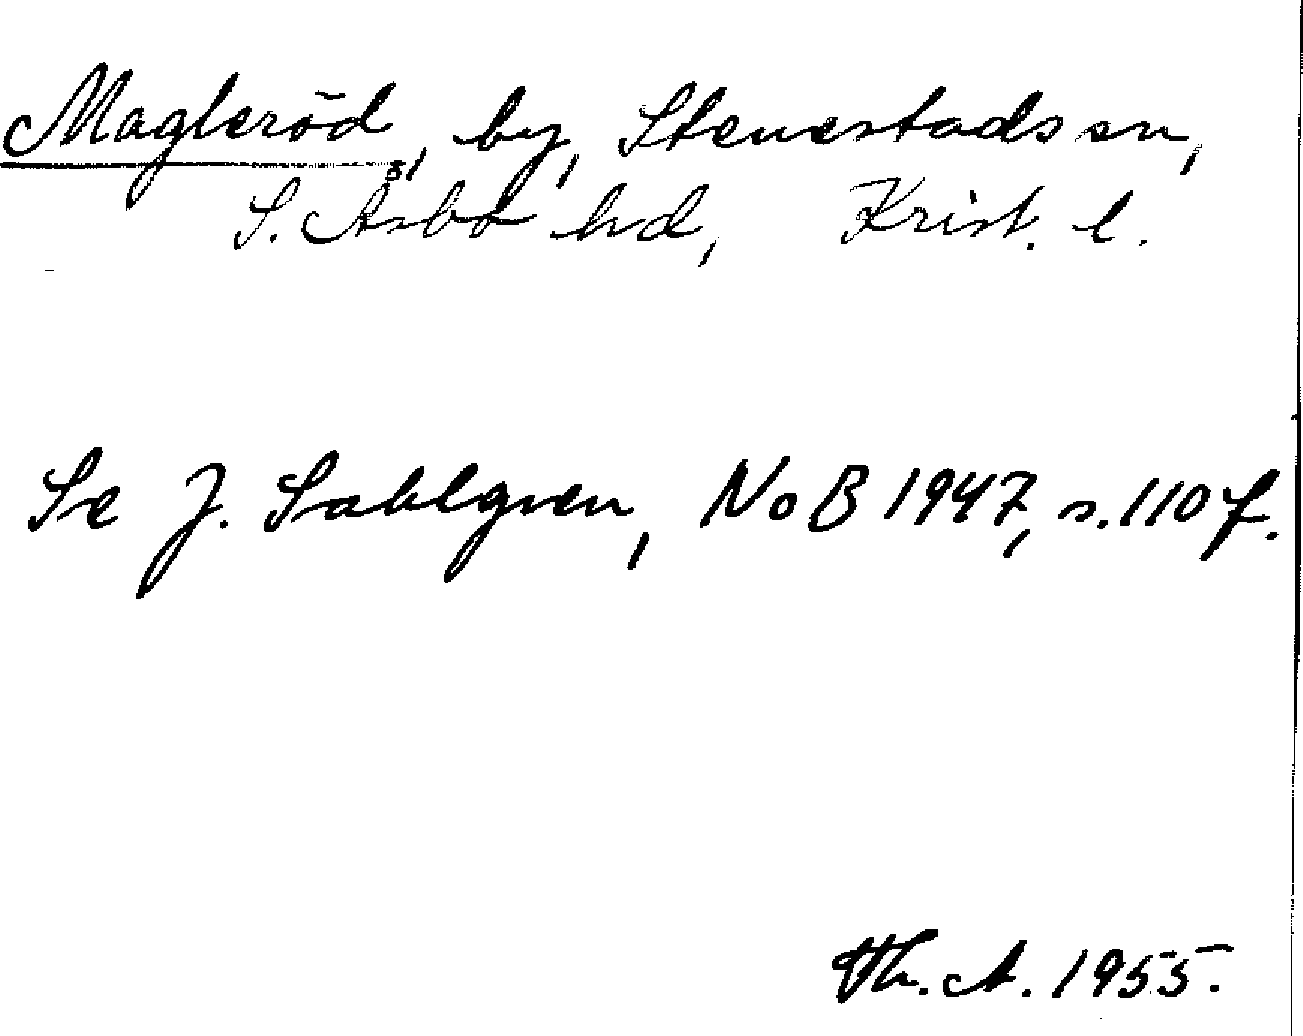 Magleröd, by, Stenestads sn,
S. Åsbo hd, Krist. l.
Se J. Sahlgren, NoB 1947, s. 110 f.
Th. A. 1955.